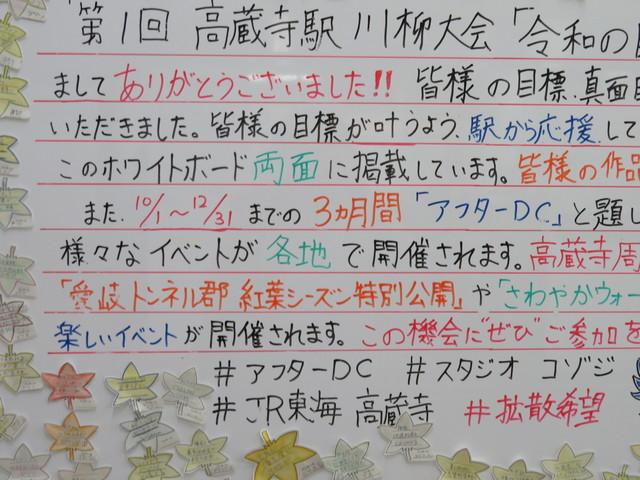 第1回 高蔵寺駅 川柳大会「令和の
まして ありがとうございました!! 皆様の目標、真面
いただきました。皆様の目標が叶うよう、駅から応援して
このホワイトボード両面に掲載しています。皆様の作品
また、10/1〜12/31までの3ヵ月間「アフターDC」と題し
様々なイベントが各地で開催されます。高蔵寺周
「愛岐トンネル郡 紅葉シーズン特別公開」や「さわやかウォー
楽しいイベントが開催されます。この機会に"ぜひ"ご参加を
#アフターDC #スタジオ コゾジ
#JR東海 高蔵寺 #拡散希望